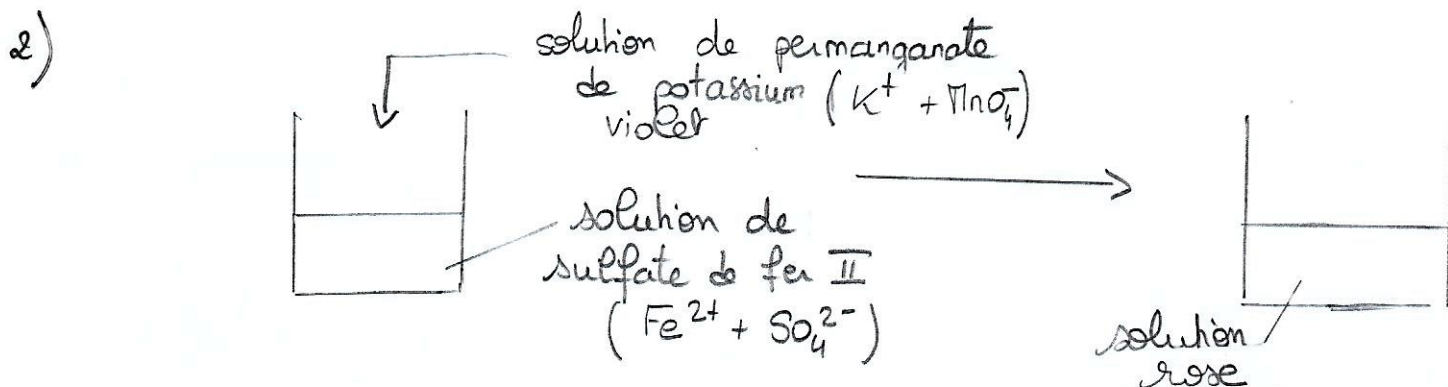 2)
solution de permanganate
de potassium (K⁺ + MnO₄⁻)
violet
solution de
sulfate de fer II
(Fe²⁺ + SO₄²⁻)
solution
rose